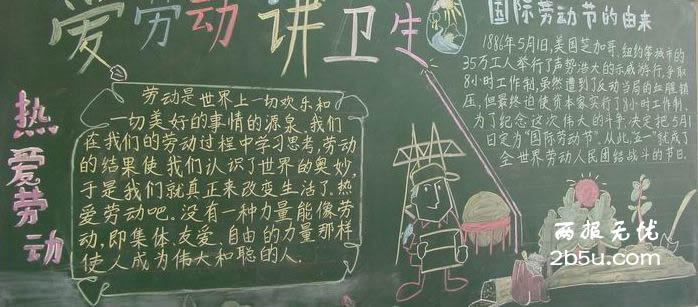 爱劳动讲卫生
热爱劳动
劳动是世界上一切欢乐和
一切美好的事情的源泉。我们
在我们的劳动过程中学习思考,劳动
的结果使我们认识了世界的奥妙,
于是我们就真正来改变生活了。热
爱劳动吧。没有一种力量能像劳
动,即集体、友爱、自由的力量那样
使人成为伟大和聪的人.
国际劳动节的由来
1886年5月1日,美国芝加哥、纽约等城市的
35万工人举行了声势浩大的示威游行,争取
8小时工作制,虽然遭到了反动当局的血腥镇
压,但最终迫使资本家实行了8小时工作制.
为了纪念这次伟大的斗争,决定把5月
1日定为“国际劳动节”.从此,“五一”就成了
全世界劳动人民团结战斗的节日.
两报无忧
2b5u.com